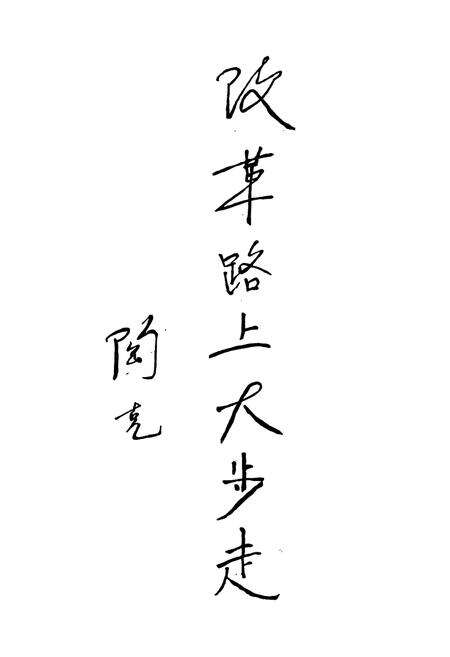 改革路上大步走
陶克